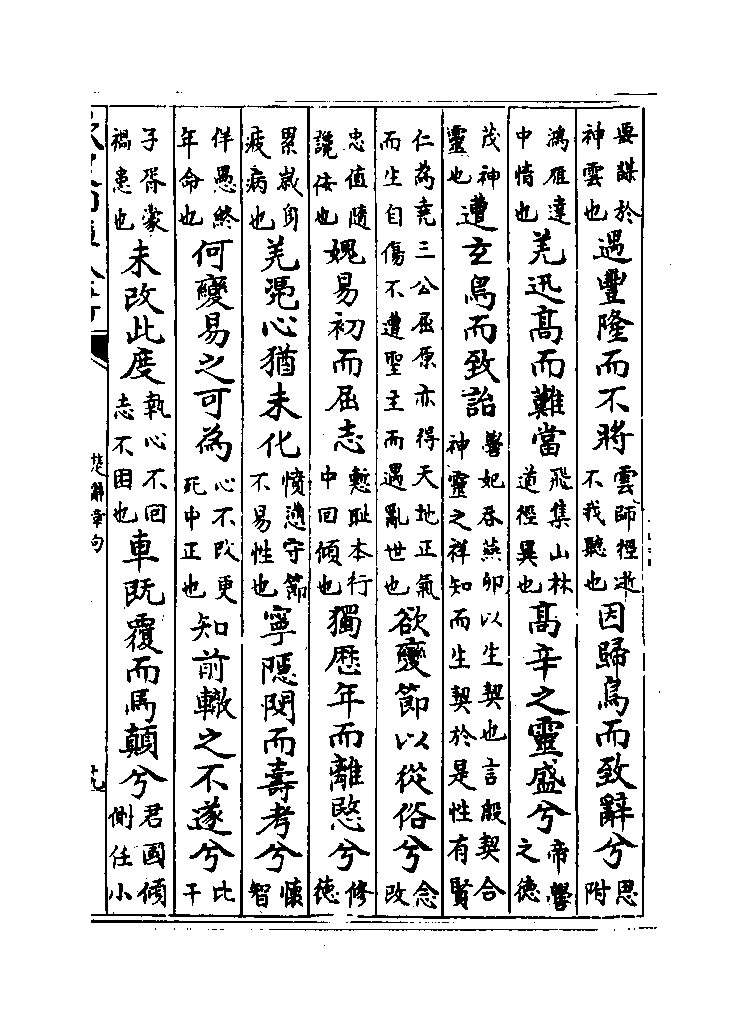 要謀於神雲也遇豐隆而不將雲師徑逝不我聽也因歸鳥而致辭兮思附
鴻雁達中情也羌迅髙而難當飛集山林道徑異也髙辛之靈盛兮帝嚳之德
茂神靈也遭玄鳥而致詒嚳妃吞燕卵以生契也言殷契合神靈之祥知而生契於是性有賢
仁為堯三公屈原亦得天地正氣而生自傷不遭聖主而遇亂世也欲變節以從俗兮念改
忠值隨讒佞也媿易初而屈志慙耻本行中回傾也獨歴年而離愍兮修德
累嵗身疲病也羌馮心猶未化憤懣守節不易性也寧隠閔而壽考兮懷智
佯愚終年命也何變易之可為心不改更死中正也知前轍之不遂兮比干
子胥蒙禍患也未改此度執心不回志不困也車旣覆而馬顛兮君國傾側任小
楚辭章句